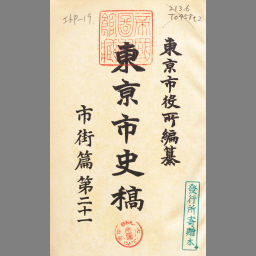 東京市役所編纂
東京市史稿
市街篇第二十一
帝國圖書館藏
發行所寄贈本